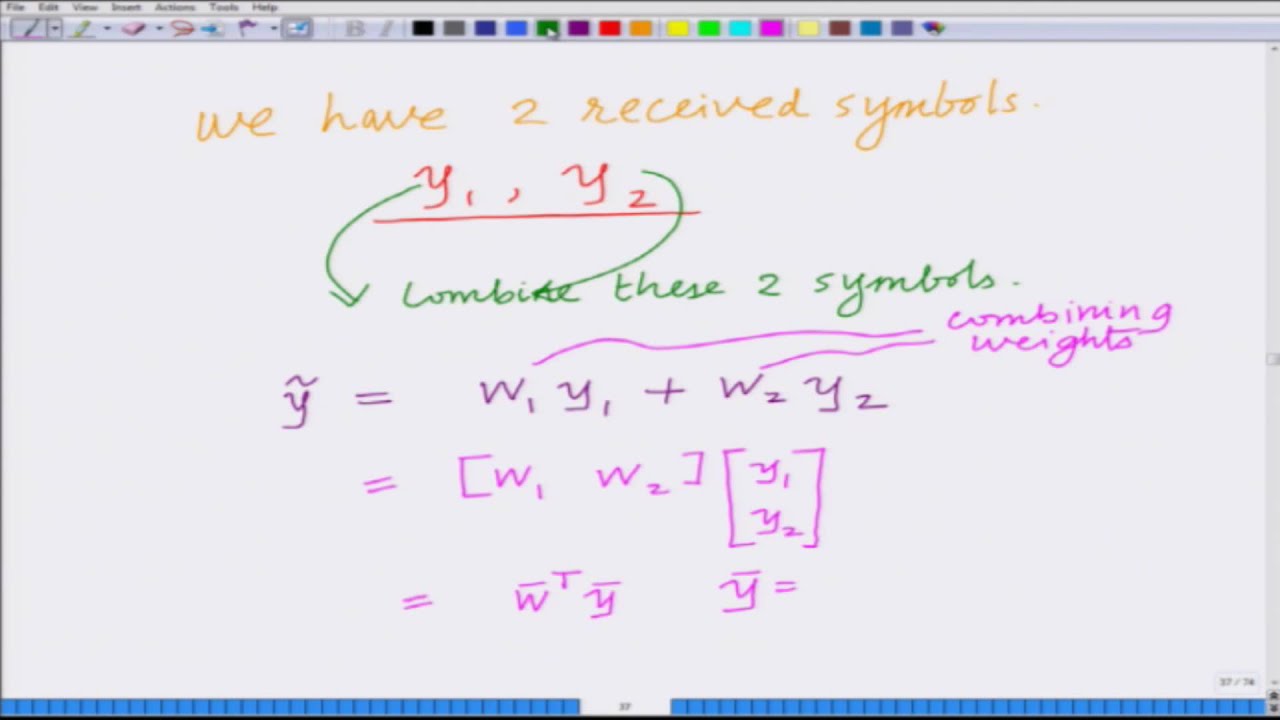 File Edit View Insert Actions Tools Help
we have 2 received symbols.
y₁ , y₂
combine these 2 symbols.
combining
weights
ỹ = w₁ y₁ + w₂ y₂
= [w₁ w₂] [y₁
y₂]
= w̄ᵀ ȳ ȳ =
37 / 74
37